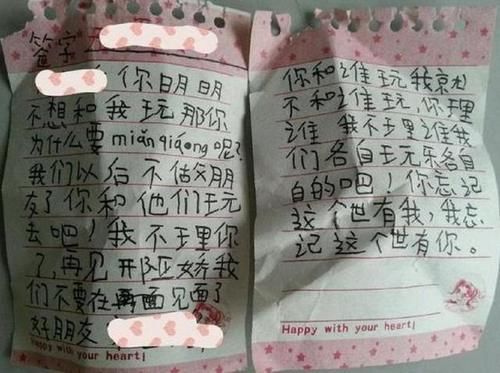 签字
你明明
不想和我玩那你
为什么要miǎnqiǎong呢?
我们以后不做朋
友了你和他们玩
去吧!我不理你
了,再见 娇我
们不要在 面见面了
好朋友
Happy with your heart!
你和谁玩我就
不和谁玩,你理
谁 我不理谁我
们各自玩乐各自
白的吧!你忘记
这个世有我,我忘
记这个世有你。
Happy with your heart!